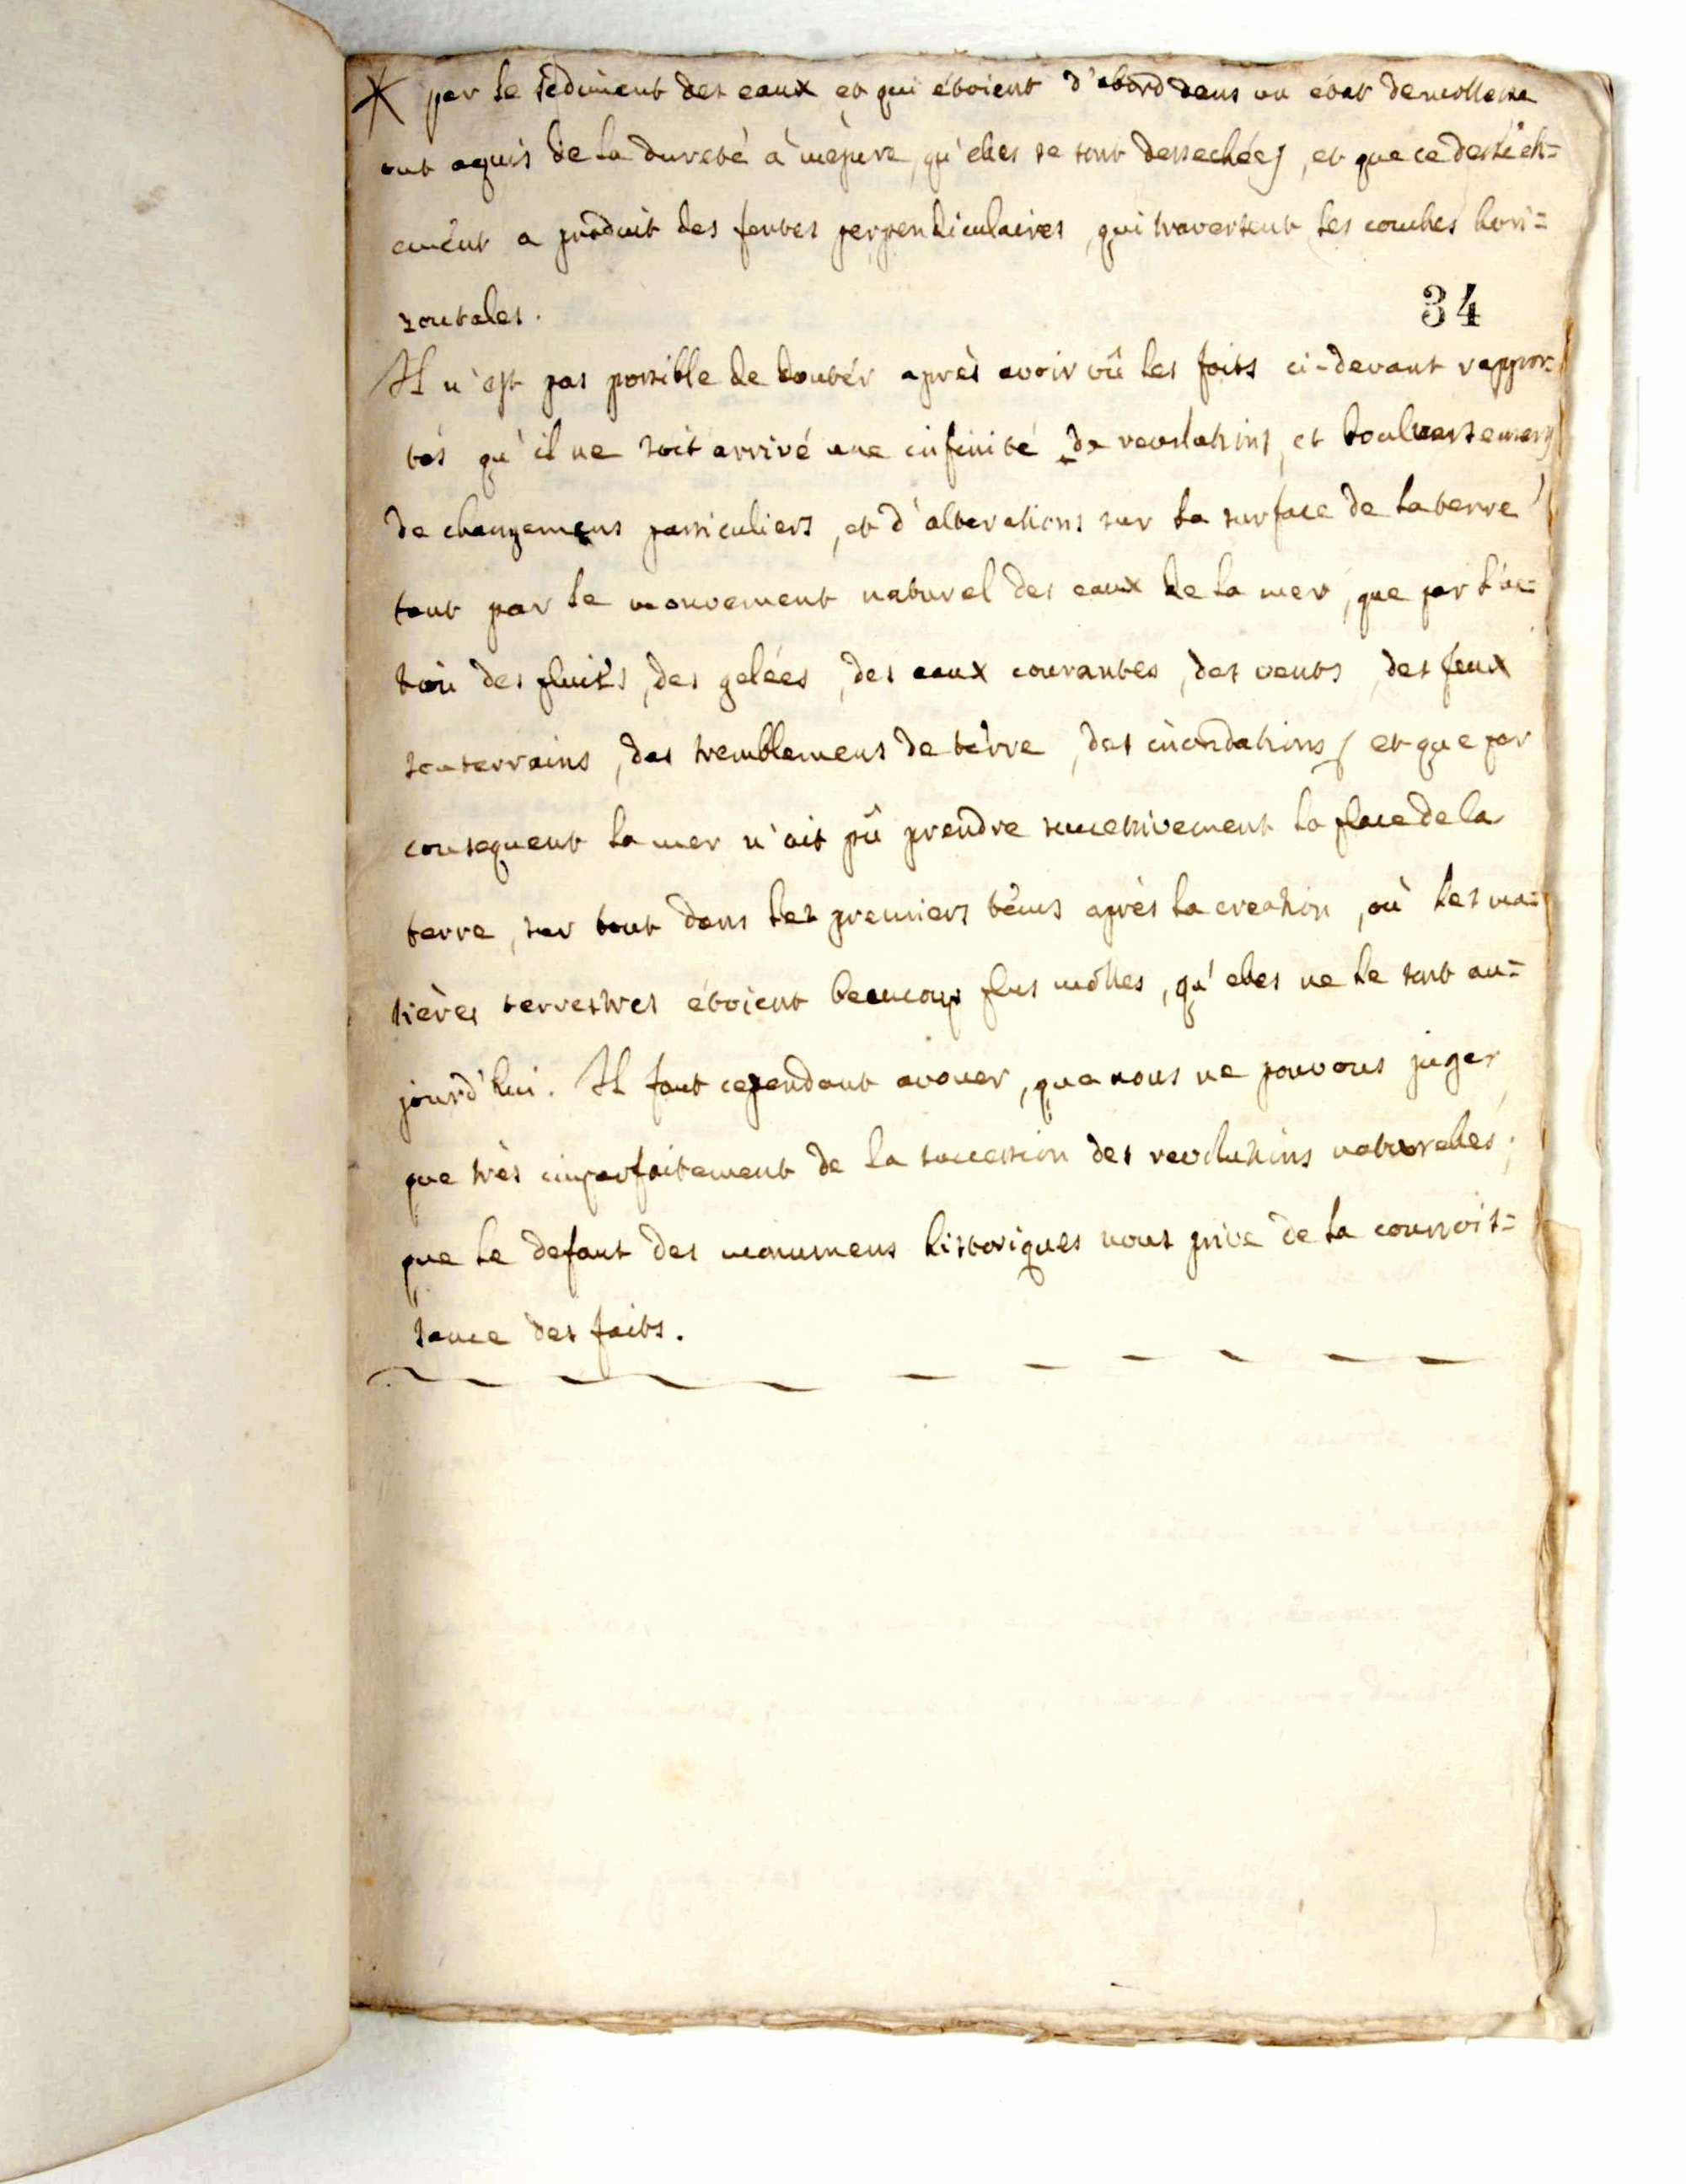 * par le sediment des eaux et qui étoient d'abord dans un état de mollesse
ont aquis de la dureté à mesure, qu'elles se sont dessechées, et que ce dessèch=
ement a produit des fentes perpendiculaires, qui traversent les couches hori=
zontales.
34
Il n'est pas possible de doutér après avoir vû les faits ci-devant rappor=
tés qu'il ne soit arrivé une infinité de revolutions, et boulversemens
de changemens particuliers, et d'alterations sur la surface de la terre
tant par le mouvement naturel des eaux de la mer, que par l'ac=
tion des pluies, des gelées, des eaux courantes, des vents, des feux
souterrains, des tremblemens de tèrre, des inondations, et que par
consequent la mer n'ait pû prendre successivement la place de la
terre, sur tout dans les premiers tèms après la creation, où les ma=
tières terrestres étoient beaucoup plus molles, qu'elles ne le sont au=
jourd'hui. Il faut cependant avouer, que nous ne pouvons juger
que très imparfaitement de la succession des revolutions naturelles;
que le defaut des monumens historiques nous prive de la connois=
sance des faits.